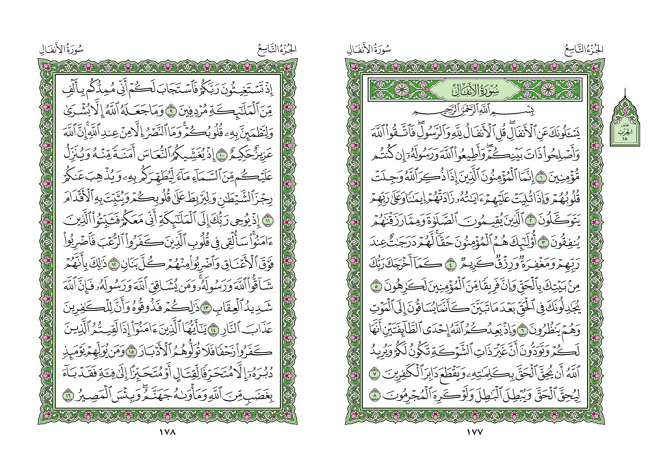 الجزء التاسع
سورة الأنفال
سُورَةُ الأَنفَالِ
بِسْمِ اللَّهِ الرَّحْمَٰنِ الرَّحِيمِ
يَسْـَٔلُونَكَ عَنِ ٱلْأَنفَالِ ۖ قُلِ ٱلْأَنفَالُ لِلَّهِ وَٱلرَّسُولِ ۖ فَٱتَّقُوا۟ ٱللَّهَ
وَأَصْلِحُوا۟ ذَاتَ بَيْنِكُمْ ۖ وَأَطِيعُوا۟ ٱللَّهَ وَرَسُولَهُۥٓ إِن كُنتُم
مُّؤْمِنِينَ ١ إِنَّمَا ٱلْمُؤْمِنُونَ ٱلَّذِينَ إِذَا ذُكِرَ ٱللَّهُ وَجِلَتْ
قُلُوبُهُمْ وَإِذَا تُلِيَتْ عَلَيْهِمْ ءَايَٰتُهُۥ زَادَتْهُمْ إِيمَٰنًا وَعَلَىٰ رَبِّهِمْ
يَتَوَكَّلُونَ ٢ ٱلَّذِينَ يُقِيمُونَ ٱلصَّلَوٰةَ وَمِمَّا رَزَقْنَٰهُمْ
يُنفِقُونَ ٣ أُو۟لَٰٓئِكَ هُمُ ٱلْمُؤْمِنُونَ حَقًّا ۚ لَّهُمْ دَرَجَٰتٌ عِندَ
رَبِّهِمْ وَمَغْفِرَةٌ وَرِزْقٌ كَرِيمٌ ٤ كَمَآ أَخْرَجَكَ رَبُّكَ
مِنۢ بَيْتِكَ بِٱلْحَقِّ وَإِنَّ فَرِيقًا مِّنَ ٱلْمُؤْمِنِينَ لَكَٰرِهُونَ ٥
يُجَٰدِلُونَكَ فِى ٱلْحَقِّ بَعْدَ مَا تَبَيَّنَ كَأَنَّمَا يُسَاقُونَ إِلَى ٱلْمَوْتِ
وَهُمْ يَنظُرُونَ ٦ وَإِذْ يَعِدُكُمُ ٱللَّهُ إِحْدَى ٱلطَّآئِفَتَيْنِ أَنَّهَا
لَكُمْ وَتَوَدُّونَ أَنَّ غَيْرَ ذَاتِ ٱلشَّوْكَةِ تَكُونُ لَكُمْ وَيُرِيدُ
ٱللَّهُ أَن يُحِقَّ ٱلْحَقَّ بِكَلِمَٰتِهِۦ وَيَقْطَعَ دَابِرَ ٱلْكَٰفِرِينَ ٧
لِيُحِقَّ ٱلْحَقَّ وَيُبْطِلَ ٱلْبَٰطِلَ وَلَوْ كَرِهَ ٱلْمُجْرِمُونَ ٨
١٧٧
الحزب
١٨
الجزء التاسع
سورة الأنفال
إِذْ تَسْتَغِيثُونَ رَبَّكُمْ فَٱسْتَجَابَ لَكُمْ أَنِّى مُمِدُّكُم بِأَلْفٍ
مِّنَ ٱلْمَلَٰٓئِكَةِ مُرْدِفِينَ ٩ وَمَا جَعَلَهُ ٱللَّهُ إِلَّا بُشْرَىٰ
وَلِتَطْمَئِنَّ بِهِۦ قُلُوبُكُمْ ۚ وَمَا ٱلنَّصْرُ إِلَّا مِنْ عِندِ ٱللَّهِ ۚ إِنَّ ٱللَّهَ
عَزِيزٌ حَكِيمٌ ١٠ إِذْ يُغَشِّيكُمُ ٱلنُّعَاسَ أَمَنَةً مِّنْهُ وَيُنَزِّلُ
عَلَيْكُم مِّنَ ٱلسَّمَآءِ مَآءً لِّيُطَهِّرَكُم بِهِۦ وَيُذْهِبَ عَنكُمْ
رِجْزَ ٱلشَّيْطَٰنِ وَلِيَرْبِطَ عَلَىٰ قُلُوبِكُمْ وَيُثَبِّتَ بِهِ ٱلْأَقْدَامَ
١١ إِذْ يُوحِى رَبُّكَ إِلَى ٱلْمَلَٰٓئِكَةِ أَنِّى مَعَكُمْ فَثَبِّتُوا۟ ٱلَّذِينَ
ءَامَنُوا۟ ۚ سَأُلْقِى فِى قُلُوبِ ٱلَّذِينَ كَفَرُوا۟ ٱلرُّعْبَ فَٱضْرِبُوا۟
فَوْقَ ٱلْأَعْنَاقِ وَٱضْرِبُوا۟ مِنْهُمْ كُلَّ بَنَانٍ ١٢ ذَٰلِكَ بِأَنَّهُمْ
شَآقُّوا۟ ٱللَّهَ وَرَسُولَهُۥ ۚ وَمَن يُشَاقِقِ ٱللَّهَ وَرَسُولَهُۥ فَإِنَّ ٱللَّهَ
شَدِيدُ ٱلْعِقَابِ ١٣ ذَٰلِكُمْ فَذُوقُوهُ وَأَنَّ لِلْكَٰفِرِينَ
عَذَابَ ٱلنَّارِ ١٤ يَٰٓأَيُّهَا ٱلَّذِينَ ءَامَنُوٓا۟ إِذَا لَقِيتُمُ ٱلَّذِينَ
كَفَرُوا۟ زَحْفًا فَلَا تُوَلُّوهُمُ ٱلْأَدْبَارَ ١٥ وَمَن يُوَلِّهِمْ يَوْمَئِذٍ
دُبُرَهُۥٓ إِلَّا مُتَحَرِّفًا لِّقِتَالٍ أَوْ مُتَحَيِّزًا إِلَىٰ فِئَةٍ فَقَدْ بَآءَ
بِغَضَبٍ مِّنَ ٱللَّهِ وَمَأْوَىٰهُ جَهَنَّمُ ۖ وَبِئْسَ ٱلْمَصِيرُ ١٦
١٧٨